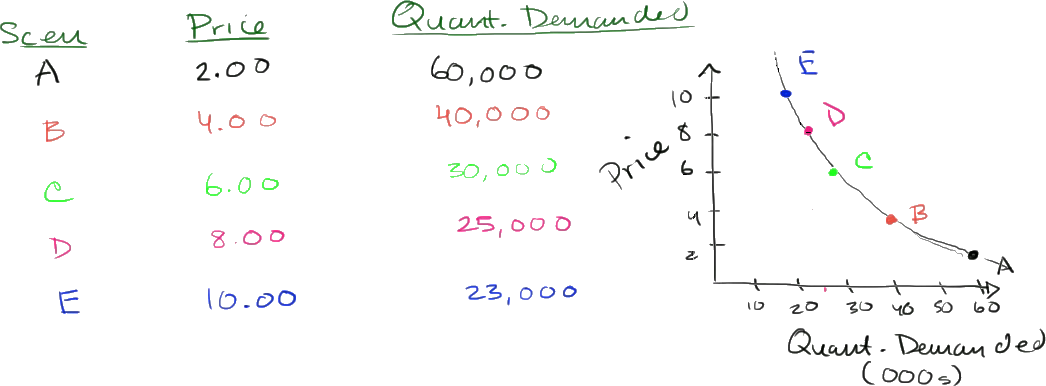 Scen Price Quant. Demanded
A 2.00 60,000
B 4.00 40,000
C 6.00 30,000
D 8.00 25,000
E 10.00 23,000
E
D
C
B
A
Price
10
8
6
4
2
10 20 30 40 50 60
Quant. Demanded
(000s)